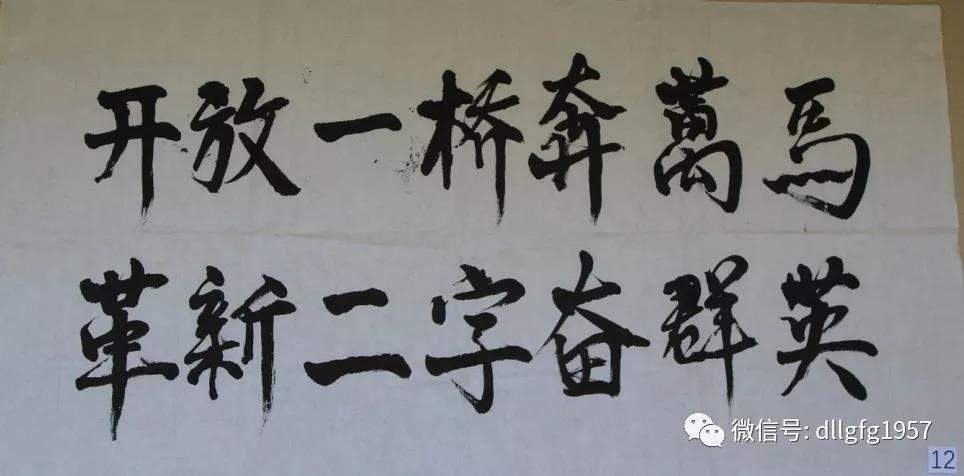 开放一桥奔萬马
革新二字奋群英
微信号: dllgfg1957
12